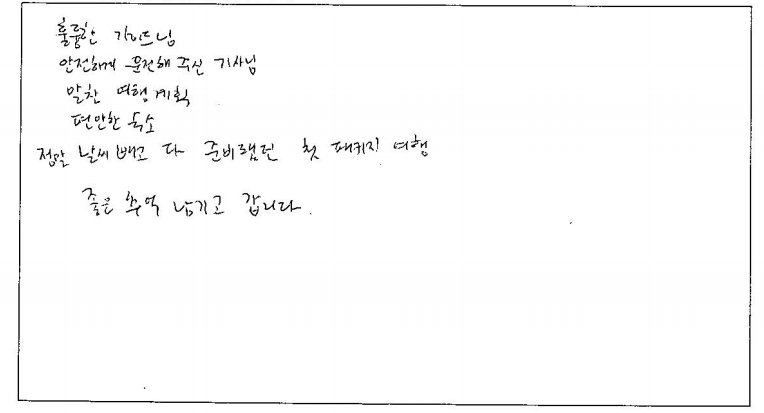 훌륭한 가이드님
안전하게 운전해 주신 기사님
알찬 여행 계획
편안한 숙소
정말 날씨 빼고 다 준비됐던 첫 패키지 여행
좋은 추억 남기고 갑니다.